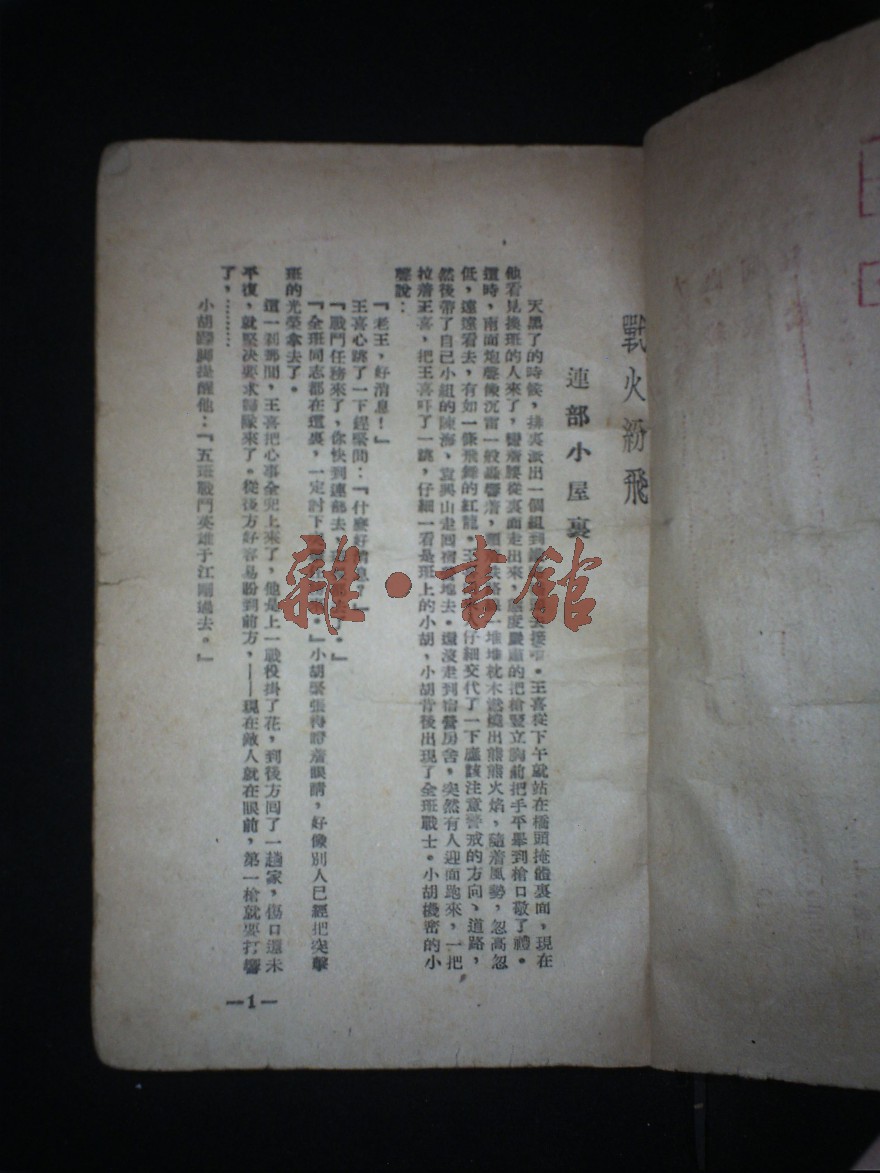 戰火紛飛
連部小屋裏
天黑了的時候，排裏派出一個組到橋頭去接哨。王喜從下午就站在橋頭掩體裏面，現在
他看見換班的人來了，彎着腰從裏面走出來，態度嚴肅的把槍豎立胸前把手平舉到槍口敬了禮。
這時，南面炮聲像沉雷一般轟響着，鐵路一堆堆枕木燃燒出熊熊火焰，隨着風勢，忽高忽
低，遠遠看去，有如一條飛舞的紅龍。王喜仔細交代了一下應該注意警戒的方向、道路，
然後帶了自己小組的陳海，袁興山走回宿營地去。還沒走到宿營房舍，突然有人迎面跑來，一把
拉着王喜，把王喜吓了一跳，仔細一看是班上的小胡，小胡背後出現了全班戰士。小胡機密的小
聲說：
『老王，好消息！』
王喜心跳了一下趕緊問：『什麽好消息？』
『戰鬥任務來了，你快到連部去，
『全班同志都在這裏，一定討下 』小胡緊張得瞪着眼睛，好像別人已經把突擊
班的光榮拿去了。
這一刹那間，王喜把心事全兜上來了，他是上一戰役掛了花，到後方囘了一趟家，傷口還未
平復，就堅決要求歸隊來了。從後方好容易盼到前方，——現在敵人就在眼前，第一槍就要打響
了，………
小胡 脚提醒他：『五班戰鬥英雄于江剛過去。』
—1—
雜·書館